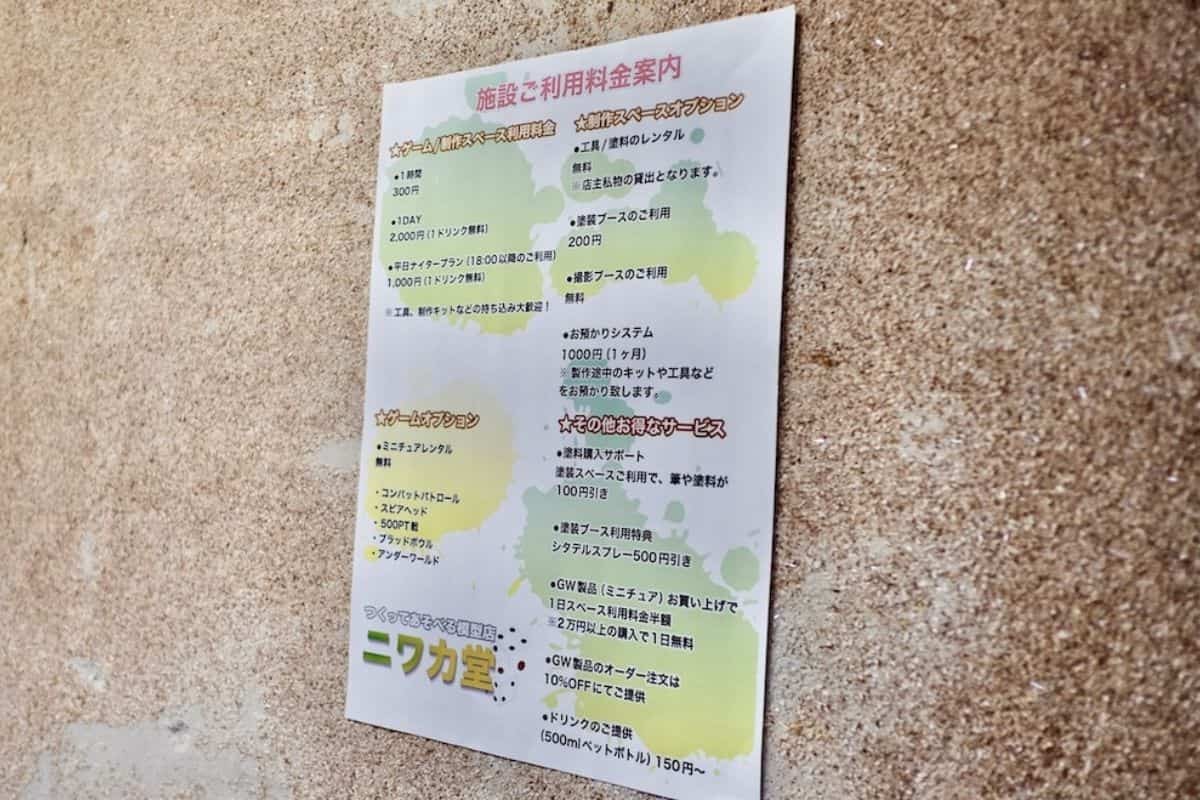 施設ご利用料金案内
★ゲーム/制作スペース利用料金
●1時間
300円
●1DAY
2,000円(1ドリンク無料)
●平日ナイタープラン(18:00以降のご利用)
1,000円(1ドリンク無料)
※工具、制作キットなどの持ち込み大歓迎!
★ゲームオプション
●ミニチュアレンタル
無料
・コンバットパトロール
・スピアヘッド
・500PT戦
・ブラッドボウル
・アンダーワールド
つくってあそべる模型店
ニワカ堂
★制作スペースオプション
●工具/塗料のレンタル
無料
※店主私物の貸出となります。
●塗装ブースのご利用
200円
●撮影ブースのご利用
無料
●お預かりシステム
1000円(1ヶ月)
※製作途中のキットや工具など
をお預かり致します。
★その他お得なサービス
●塗料購入サポート
塗装スペースご利用で、筆や塗料が
100円引き
●塗装ブース利用特典
シタデルスプレー500円引き
●GW製品(ミニチュア)お買い上げで
1日スペース利用料金半額
※2万円以上の購入で1日無料
●GW製品のオーダー注文は
10%OFFにてご提供
●ドリンクのご提供
(500mlペットボトル)150円〜